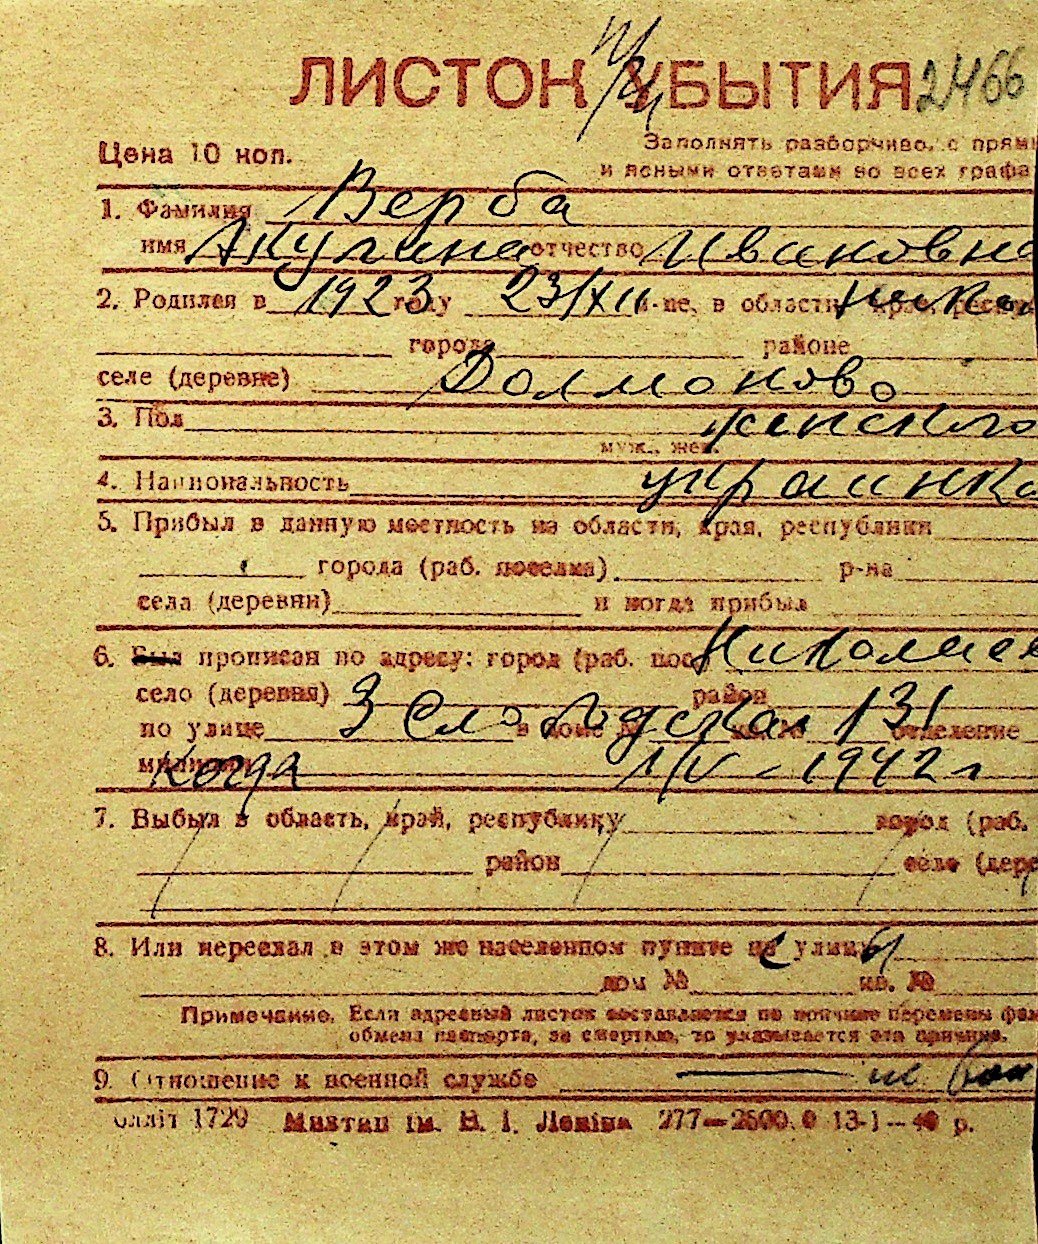 ЛИСТОК УБЫТИЯ 2466
Цена 10 коп.
Заполнять разборчиво, с прям
и ясными ответами во всех графа
1. Фамилия Верба
имя Акулина отчество Ивановна
2. Родился в 1923 году 23/XII м-це, в области, край, респу
города районе
селе (деревне) Долманово
3. Пол женского
муж., жен.
4. Национальность украинка
5. Прибыл в данную местность из области, края, республики
города (раб. поселка) р-на
села (деревни) и когда прибыл
6. Был прописан по адресу: город (раб. пос Николаев
село (деревня) район
по улице 3 Слободская 131 отделение
милиции Когда 1/V - 1942 г
7. Выбыл в область, край, республику город (раб.
район село (дере
8. Или переехал в этом же населенном пункте на улицу
дом № кв. №
Примечание. Если адресный листок составляется по причине перемены фам
обмена паспорта, за смертью, то указывается эта причина.
9. Отношение к военной службе не
облліт 1729 Миктип ім. В. І. Леніна 277—2500.0 13-1-40 р.